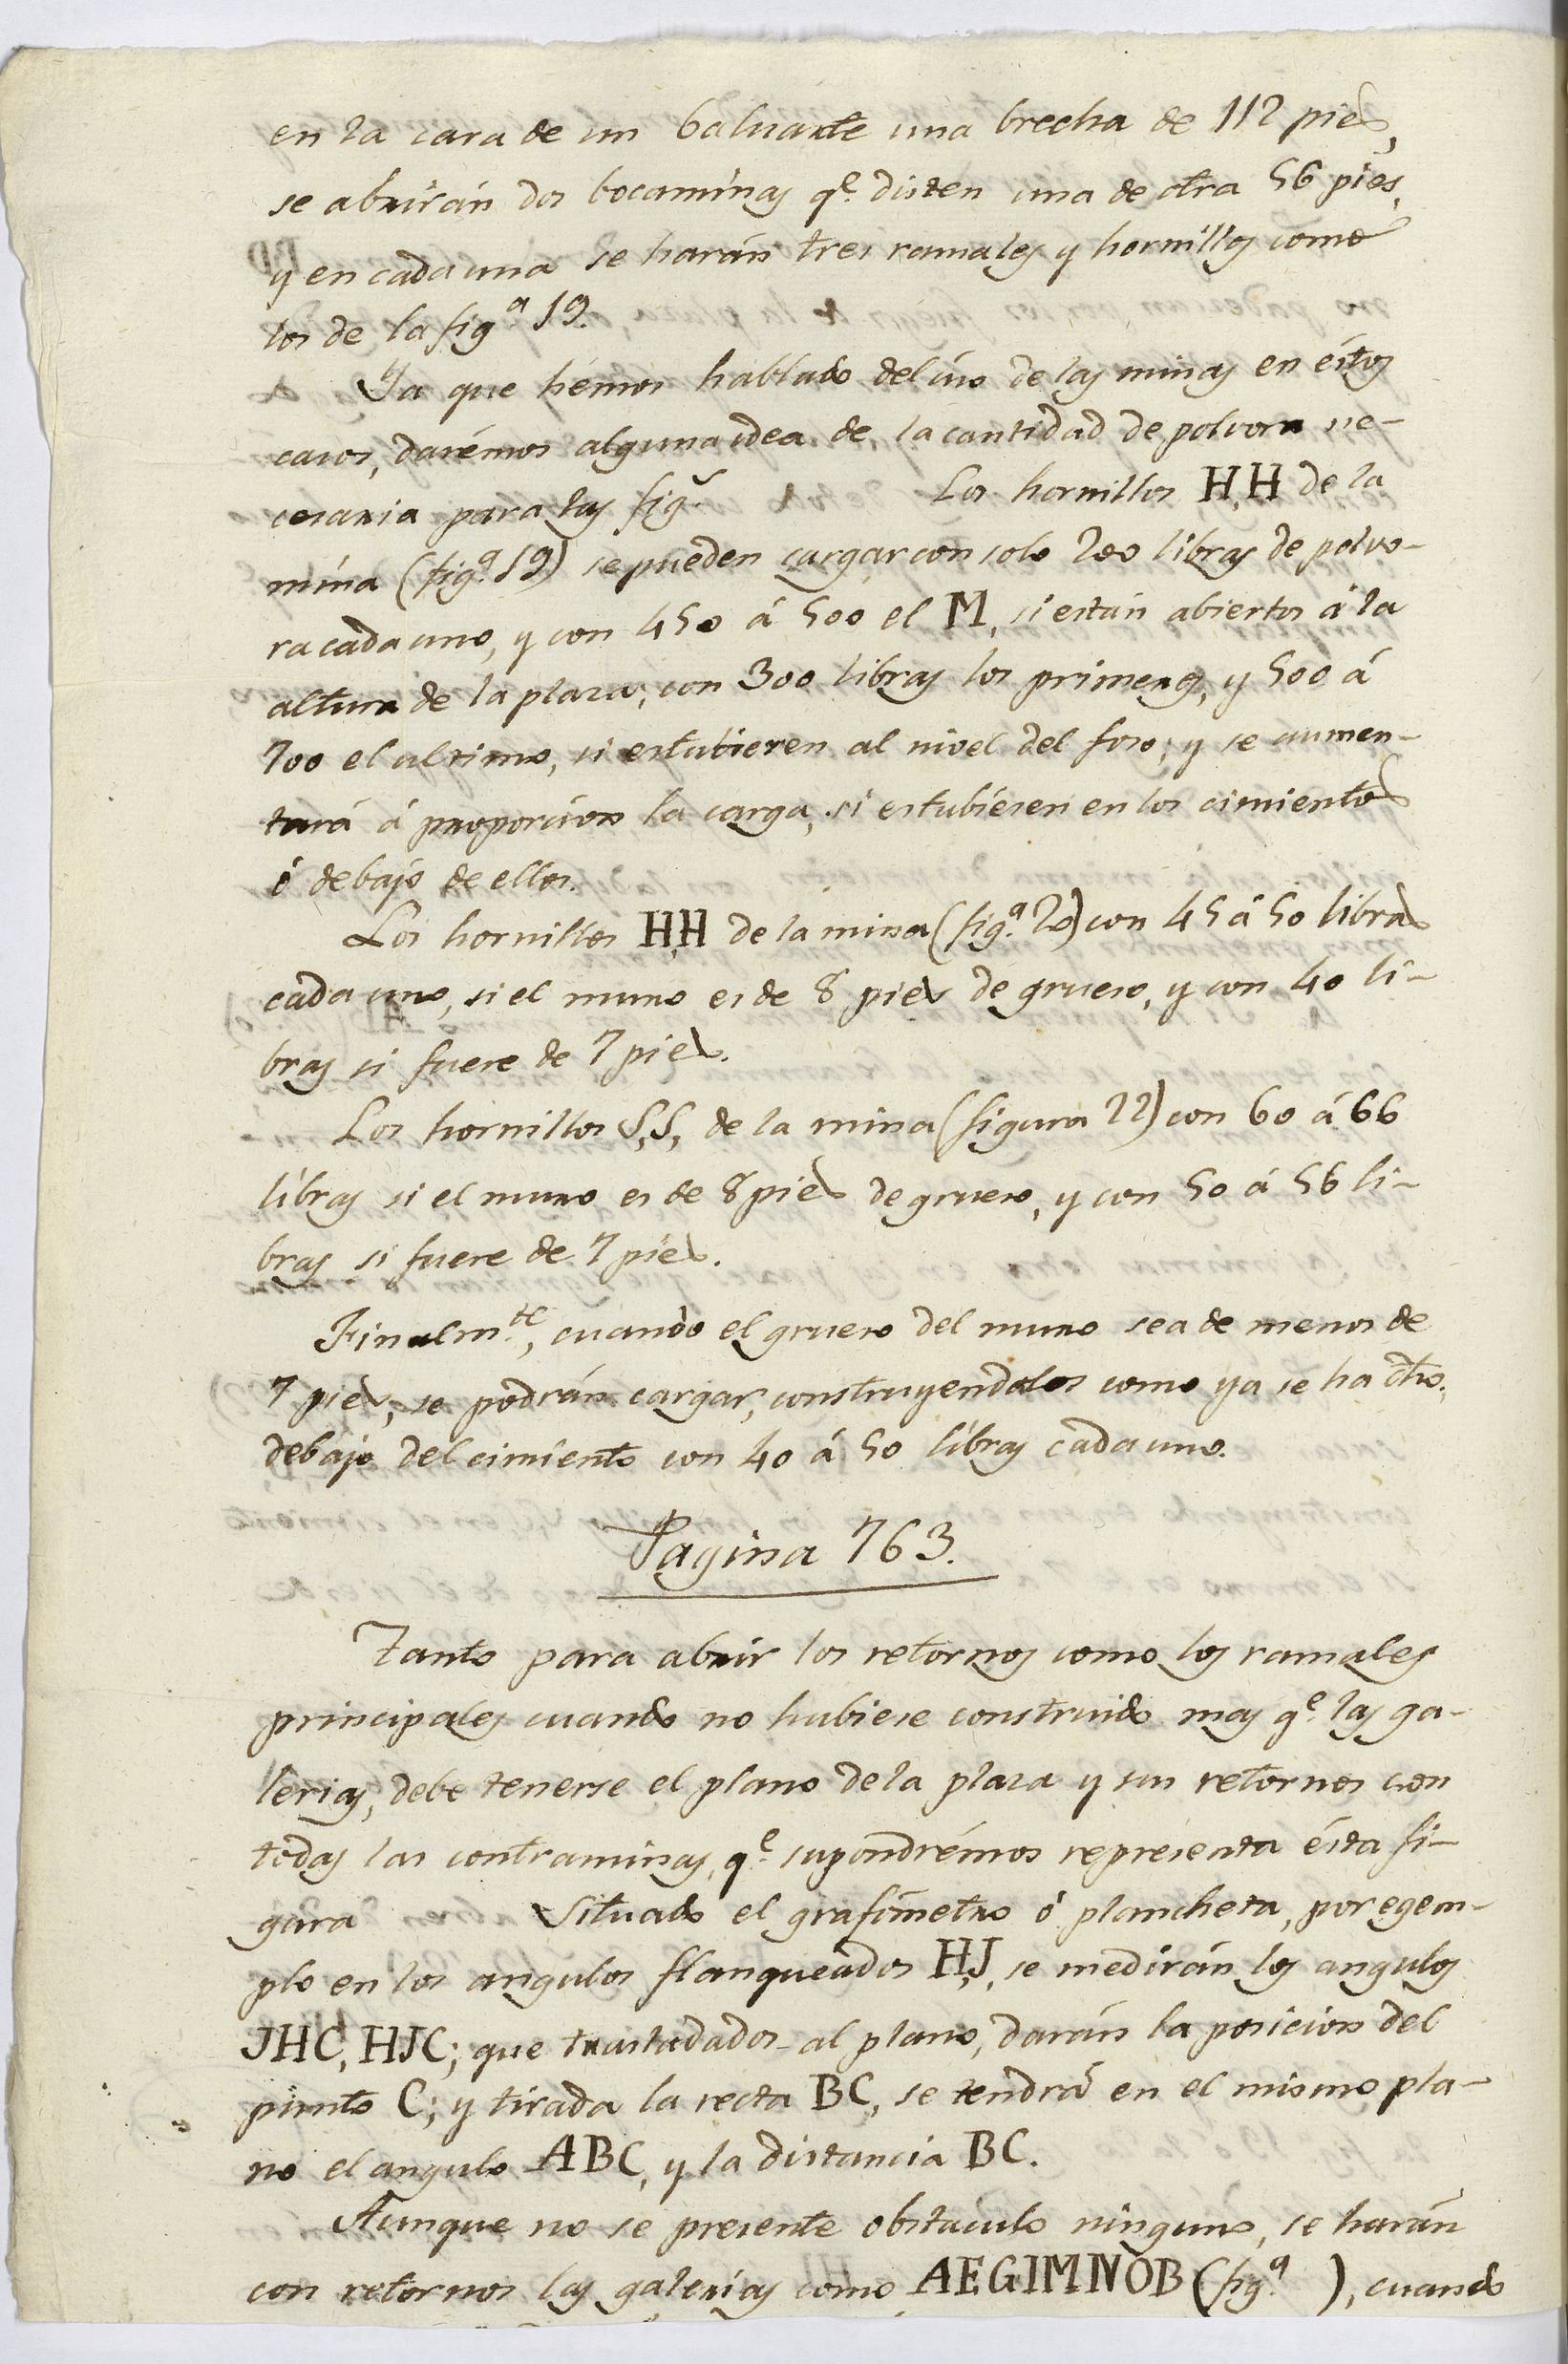 en la cara de un baluarte una brecha de 112 pies,
se abrirán dos bocaminas qe. disten una de otra 56 pies,
y en cada una se harán tres ramales y hornillos como
los de la figa 19.
Ya que hémos hablado del úso de las minas en éstos
casos, darémos alguna idea de la cantidad de polvora ne-
cesaria para las figs. Los hornillos H,H de la
mina (figa. 19) se pueden cargar con solo 200 libras de polvo-
ra cada uno, y con 450 á 500 el M, si están abiertos á la
altura de la plaza; con 300 libras los primeros, y 500 á
700 el ultimo, si estubieren al nivel del foso; y se aumen-
tará á proporcion la carga, si estubiesen en los cimientos
ó debajo de ellos.
Los hornillos H,H de la mina (figa. 20) con 45 á 50 libras
cada uno, si el muro es de 8 pies de grueso, y con 40 li-
bras si fuere de 7 pies.
Los hornillos S,S, de la mina (figura 22) con 60 á 66
libras si el muro es de 8 pies de grueso, y con 50 á 56 li-
bras si fuere de 7 pies.
Finalmte., cuando el grueso del muro sea de menos de
7 pies, se podrán cargar, construyendolos como ya se ha dho.
debajo del cimiento con 40 á 50 libras cada uno.
Pagina 763.
Tanto para abrir los retornos como los ramales
principales cuando no hubiese construido mas qe. las ga-
lerias, debe tenerse el plano de la plaza y sus retornos con
todas las contraminas, qe. supondrémos representa ésta fi-
gura Situado el grafómetro ó plancheta, por egem-
plo en los angulos flanqueados H,J, se medirán los angulos
JHC, HJC; que trasladados al plano, darán la posicion del
punto C; y tirada la recta BC, se tendrá en el mismo pla-
no el angulo ABC, y la distancia BC.
Aunque no se presente obstaculo ninguno, se harán
con retornos las galerías como AEGIMNOB (figa. ), cuando